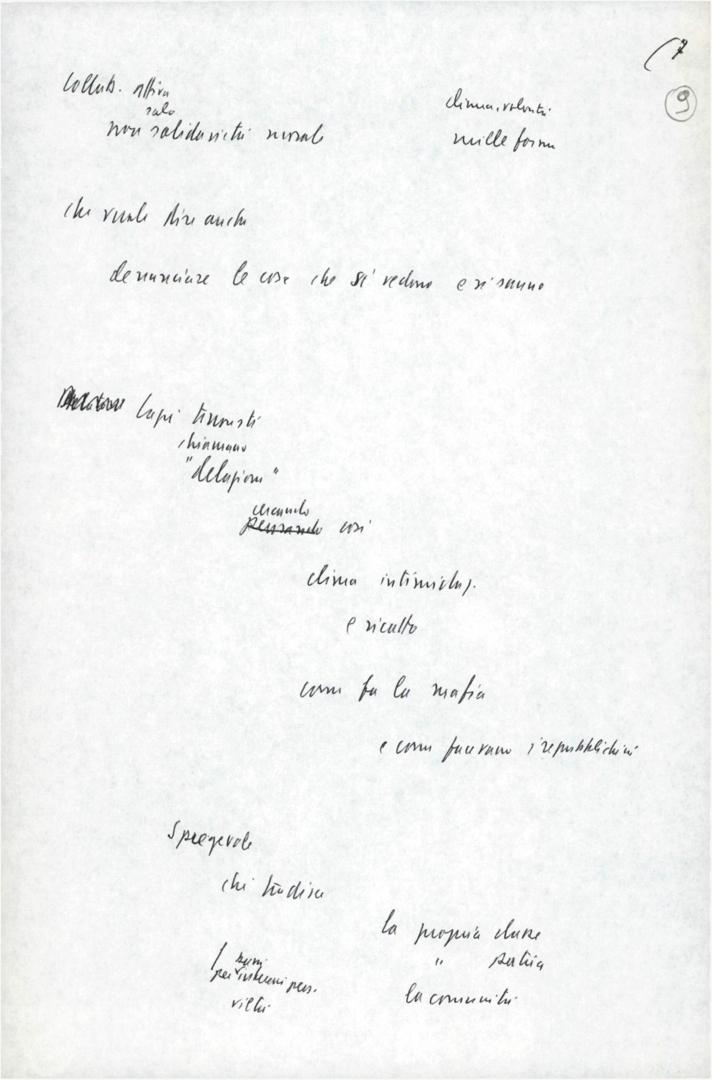 (7
9
Collab. attiva
solo
non solidarietà morale
clima, volontà
mille forme
che vuole dire anche
denunciare le cose che si vedono e si sanno
Capi terroristi
chiamano
"delazione"
creando
pensando così
clima intimidaz.
e ricatto
come fa la mafia
e come facevano i repubblichini
Spregevole
chi tradisce
la propria classe
" patria
la comunità
per interessi pers.
viltà